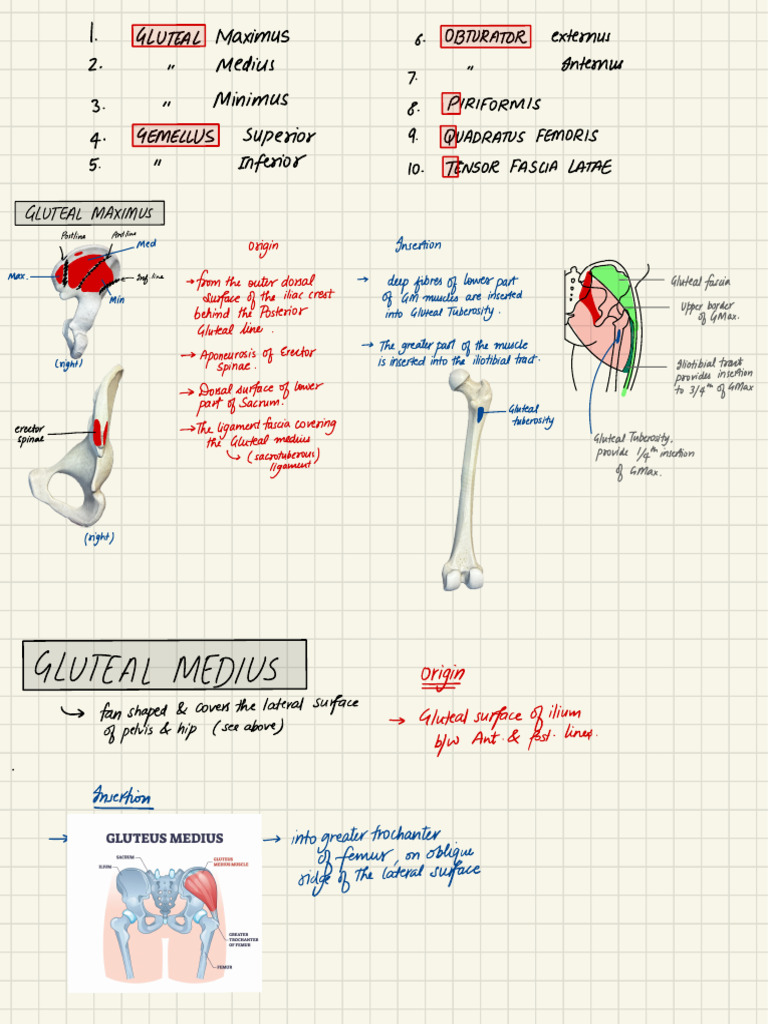 1. GLUTEAL Maximus
2. " Medius
3. " Minimus
4. GEMELLUS Superior
5. " Inferior
6. OBTURATOR externus
7. " Internus
8. PIRIFORMIS
9. QUADRATUS FEMORIS
10. TENSOR FASCIA LATAE
GLUTEAL MAXIMUS
Post line
Ant line
Med
Max.
Inf. line
Min
(right)
erector
spinae
(right)
Origin
→ from the outer dorsal
surface of the iliac crest
behind the Posterior
Gluteal line.
→ Aponeurosis of Erector
spinae.
→ Dorsal surface of lower
part of Sacrum.
→ The ligament fascia covering
the Gluteal medius
↳ (sacrotuberous)
ligament
Insertion
→ deep fibres of lower part
of GM muscles are inserted
into Gluteal Tuberosity.
→ The greater part of the muscle
is inserted into the iliotibial tract.
Gluteal
tuberosity
Gluteal fascia
Upper border
of GMax.
Iliotibial tract
provides insertion
to 3/4th of GMax
Gluteal Tuberosity.
provide 1/4th insertion
of GMax.
GLUTEAL MEDIUS
↳ fan shaped & covers the lateral surface
of pelvis & hip (see above)
Origin
→ Gluteal surface of ilium
b/w Ant. & post. lines.
Insertion
→
GLUTEUS MEDIUS
SACRUM
ILIUM
GLUTEUS
MEDIUS MUSCLE
GREATER
TROCHANTER
OF FEMUR
FEMUR
→ into greater trochanter
of femur, on oblique
ridge of the lateral surface